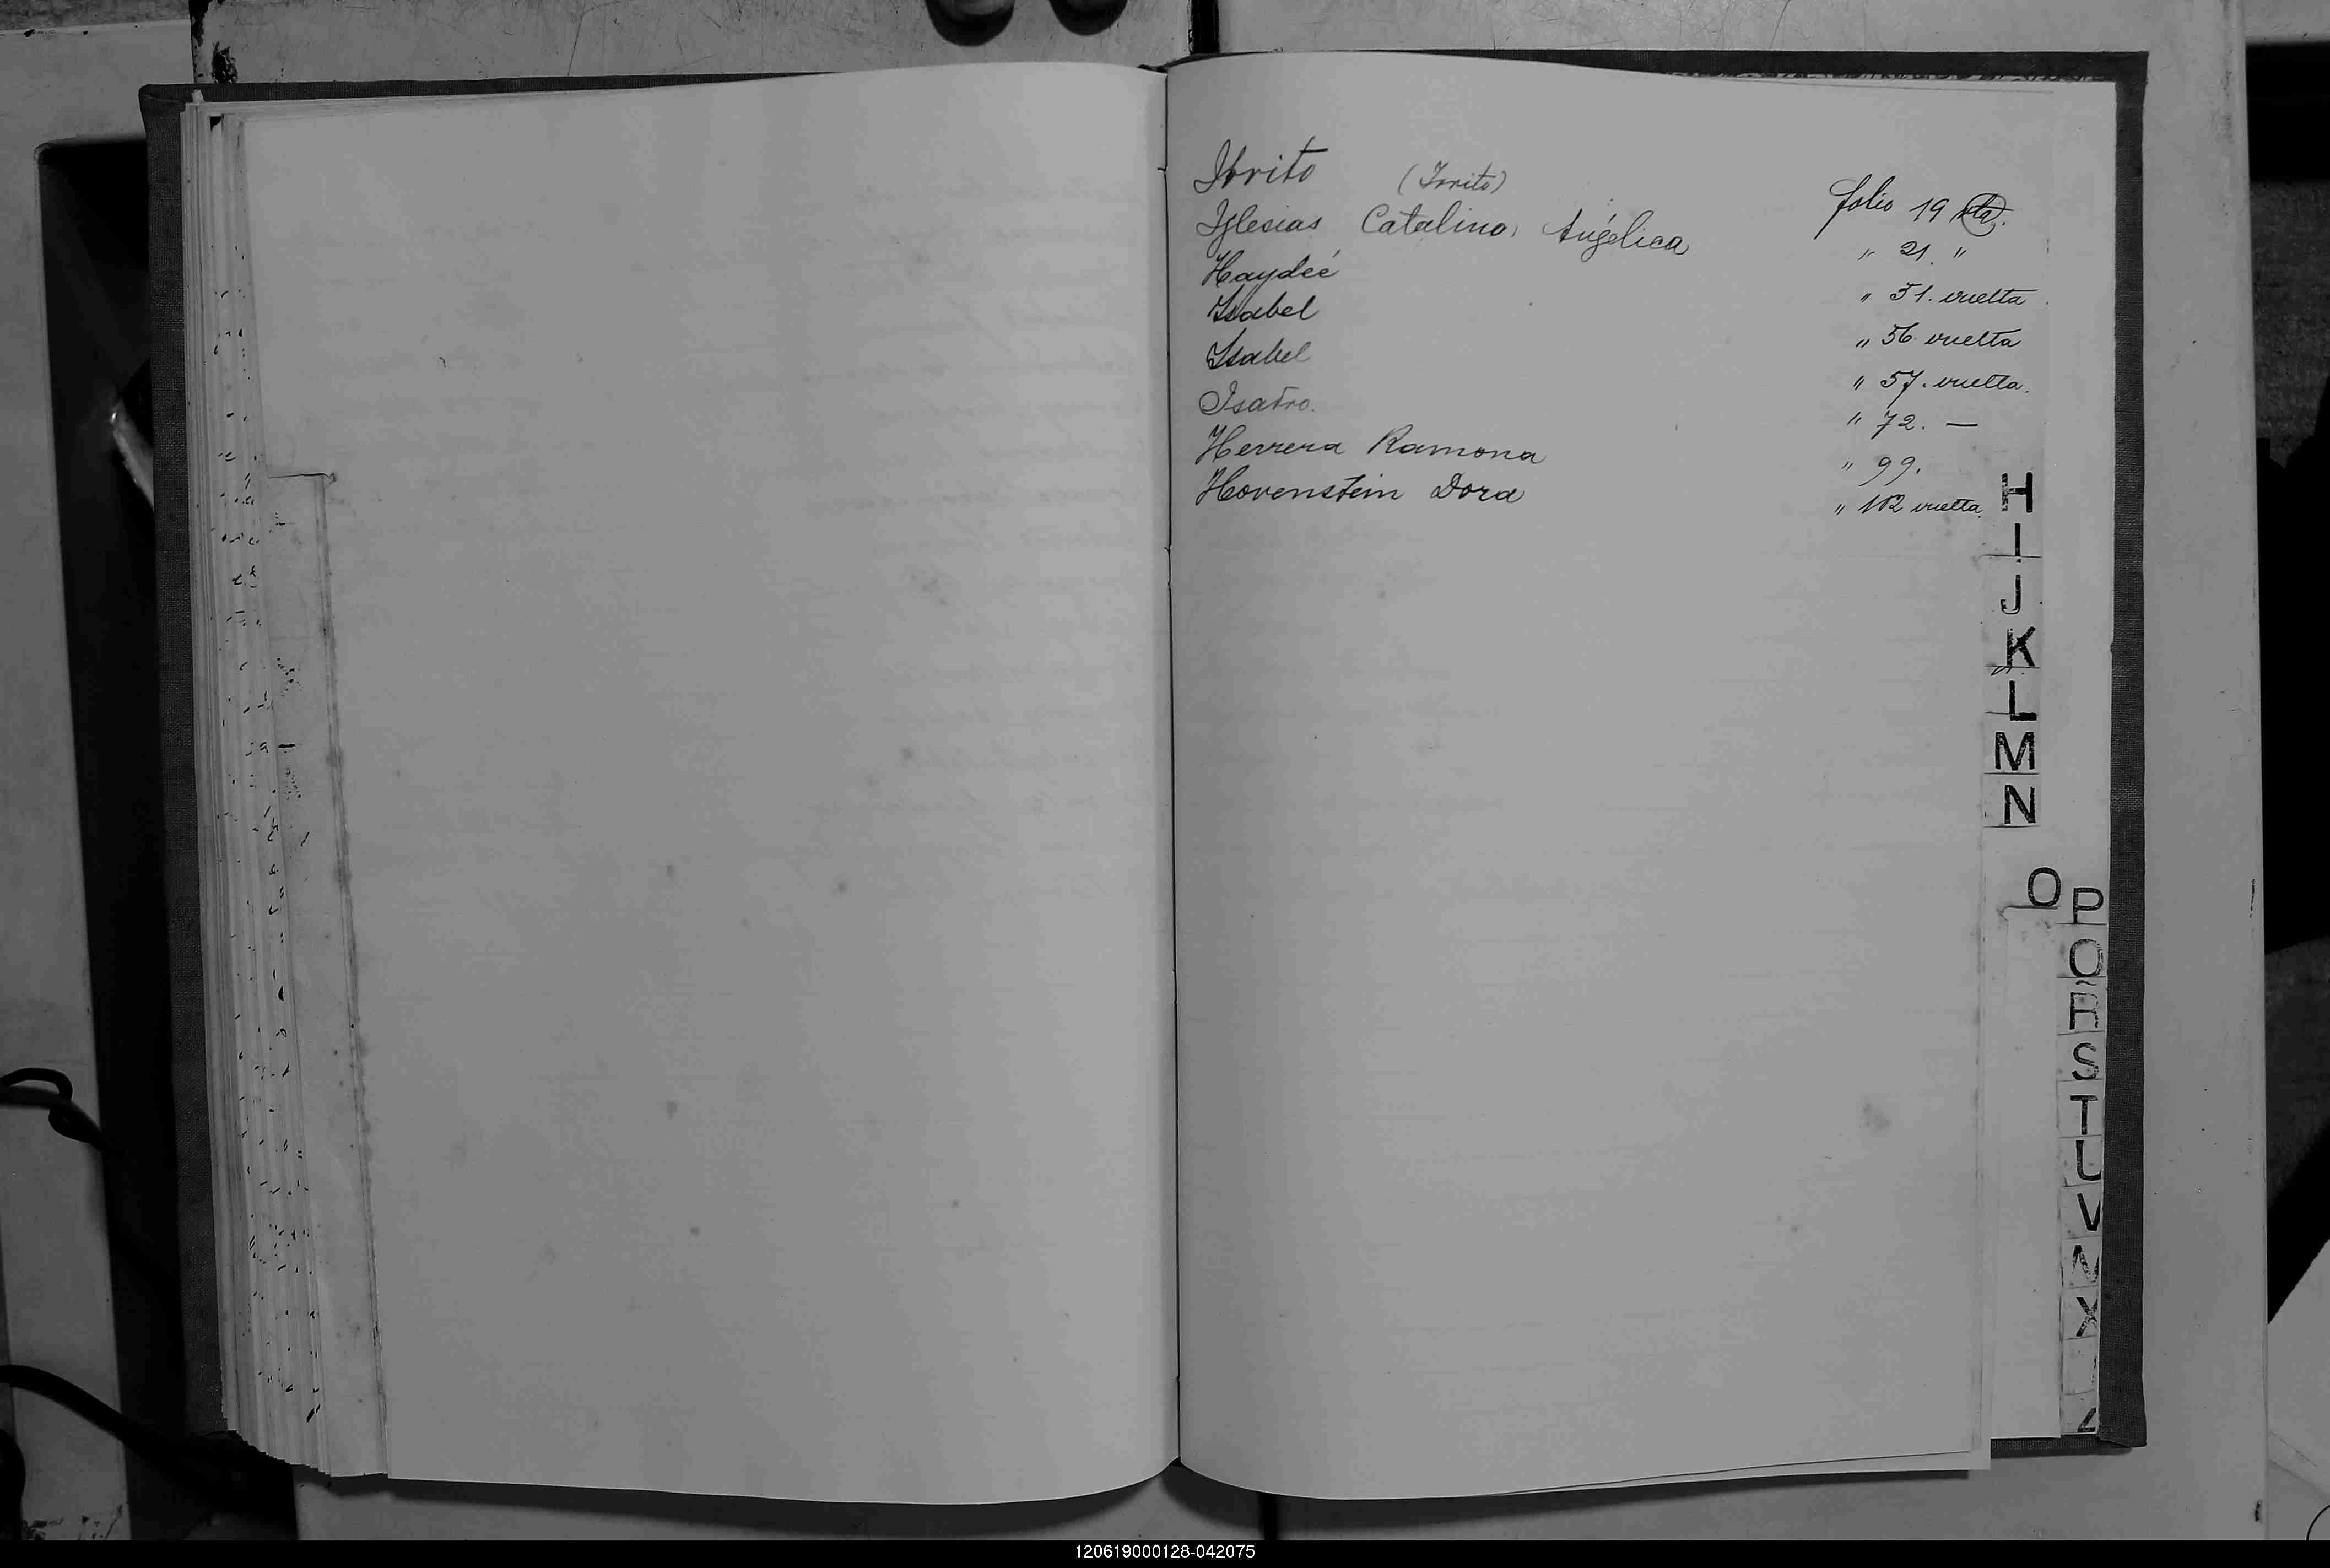 Ibrito (Irrito) folio 19 vta.
Iglesias Catalina, Angélica " 21. "
Haydeé " 51. vuelta
Isabel " 56 vuelta
Isabel " 57. vuelta.
" 72. —
Herrera Ramona " 99.
Hovenstein Dora " 102 vuelta
H
I
J
K
L
M
N
O
P
Q
R
S
T
U
V
X
Z
120619000128-042075